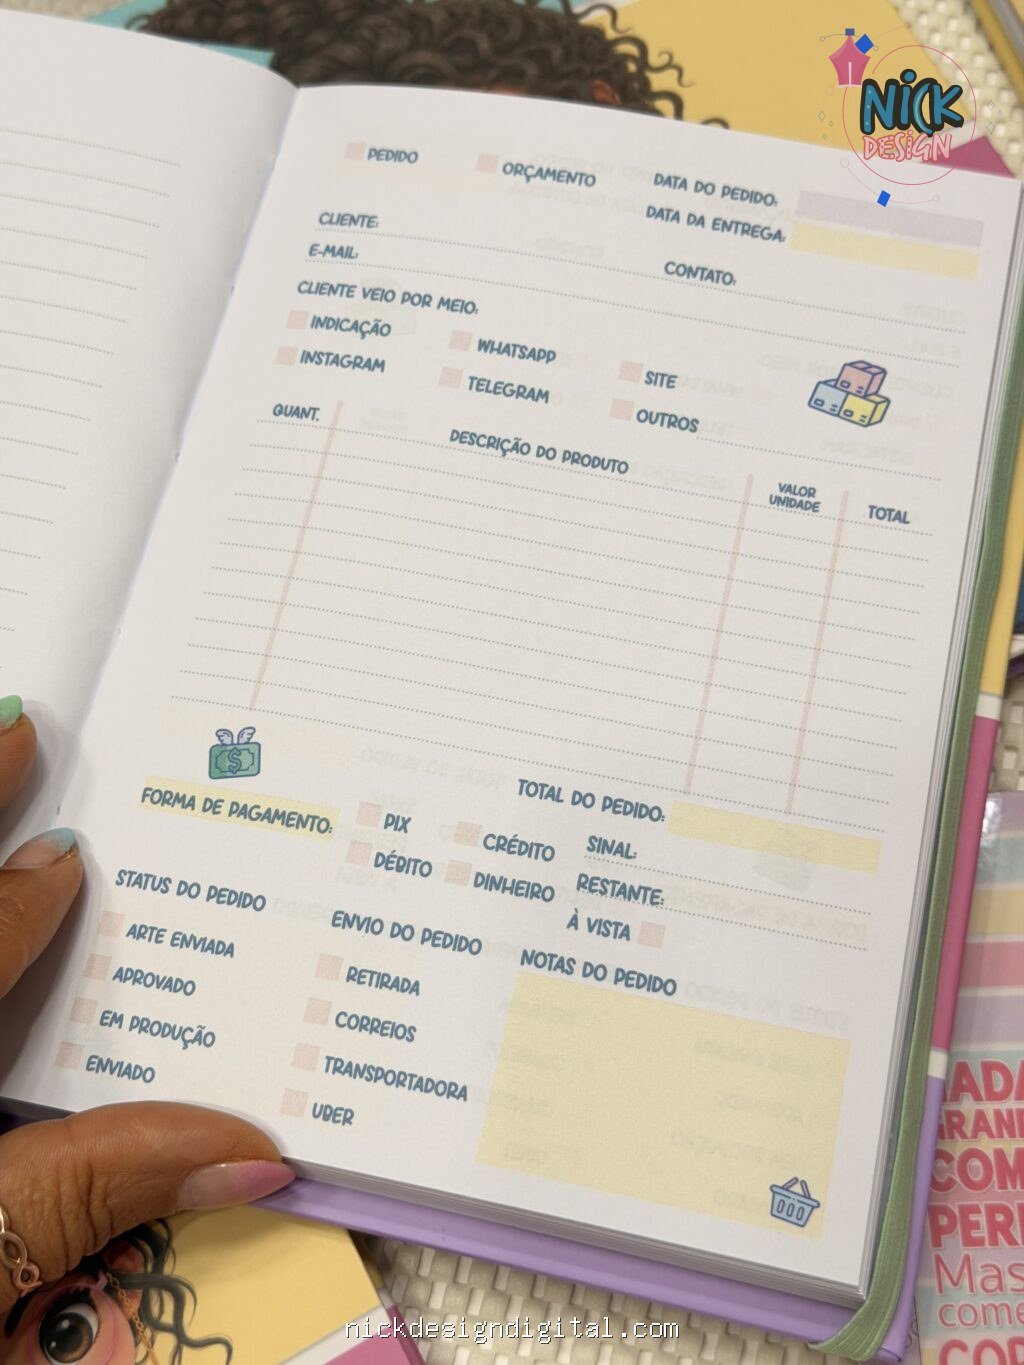 NICK
DESIGN
PEDIDO
ORÇAMENTO
DATA DO PEDIDO:
DATA DA ENTREGA:
CLIENTE:
E-MAIL:
CONTATO:
CLIENTE VEIO POR MEIO:
INDICAÇÃO
WHATSAPP
SITE
INSTAGRAM
TELEGRAM
OUTROS
QUANT.
DESCRIÇÃO DO PRODUTO
VALOR
UNIDADE
TOTAL
TOTAL DO PEDIDO:
FORMA DE PAGAMENTO:
PIX
CRÉDITO
DÉBITO
DINHEIRO
SINAL:
RESTANTE:
À VISTA
STATUS DO PEDIDO
ARTE ENVIADA
APROVADO
EM PRODUÇÃO
ENVIADO
ENVIO DO PEDIDO
RETIRADA
CORREIOS
TRANSPORTADORA
UBER
NOTAS DO PEDIDO
COM
Mas
come
nickdesigndigital.com